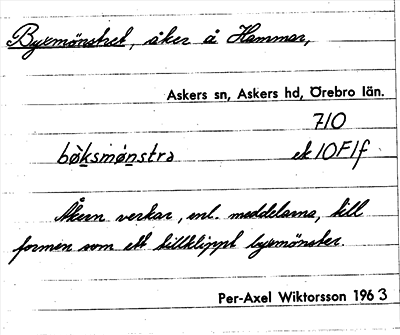 Byxmönstret, åker å Hammar,
Askers sn, Askers hd, Örebro län.
710
bø̀ksmø̀nstrə ek 10F1f
Åkern verkar, enl. meddelarna, till
formen som ett tillklippt byxmönster.
Per-Axel Wiktorsson 1963